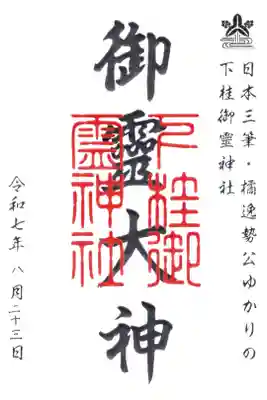 日本三筆・橘逸勢公ゆかりの
下桂御霊神社
御靈大神
下桂御
靈神社
令和七年 八月二十三日